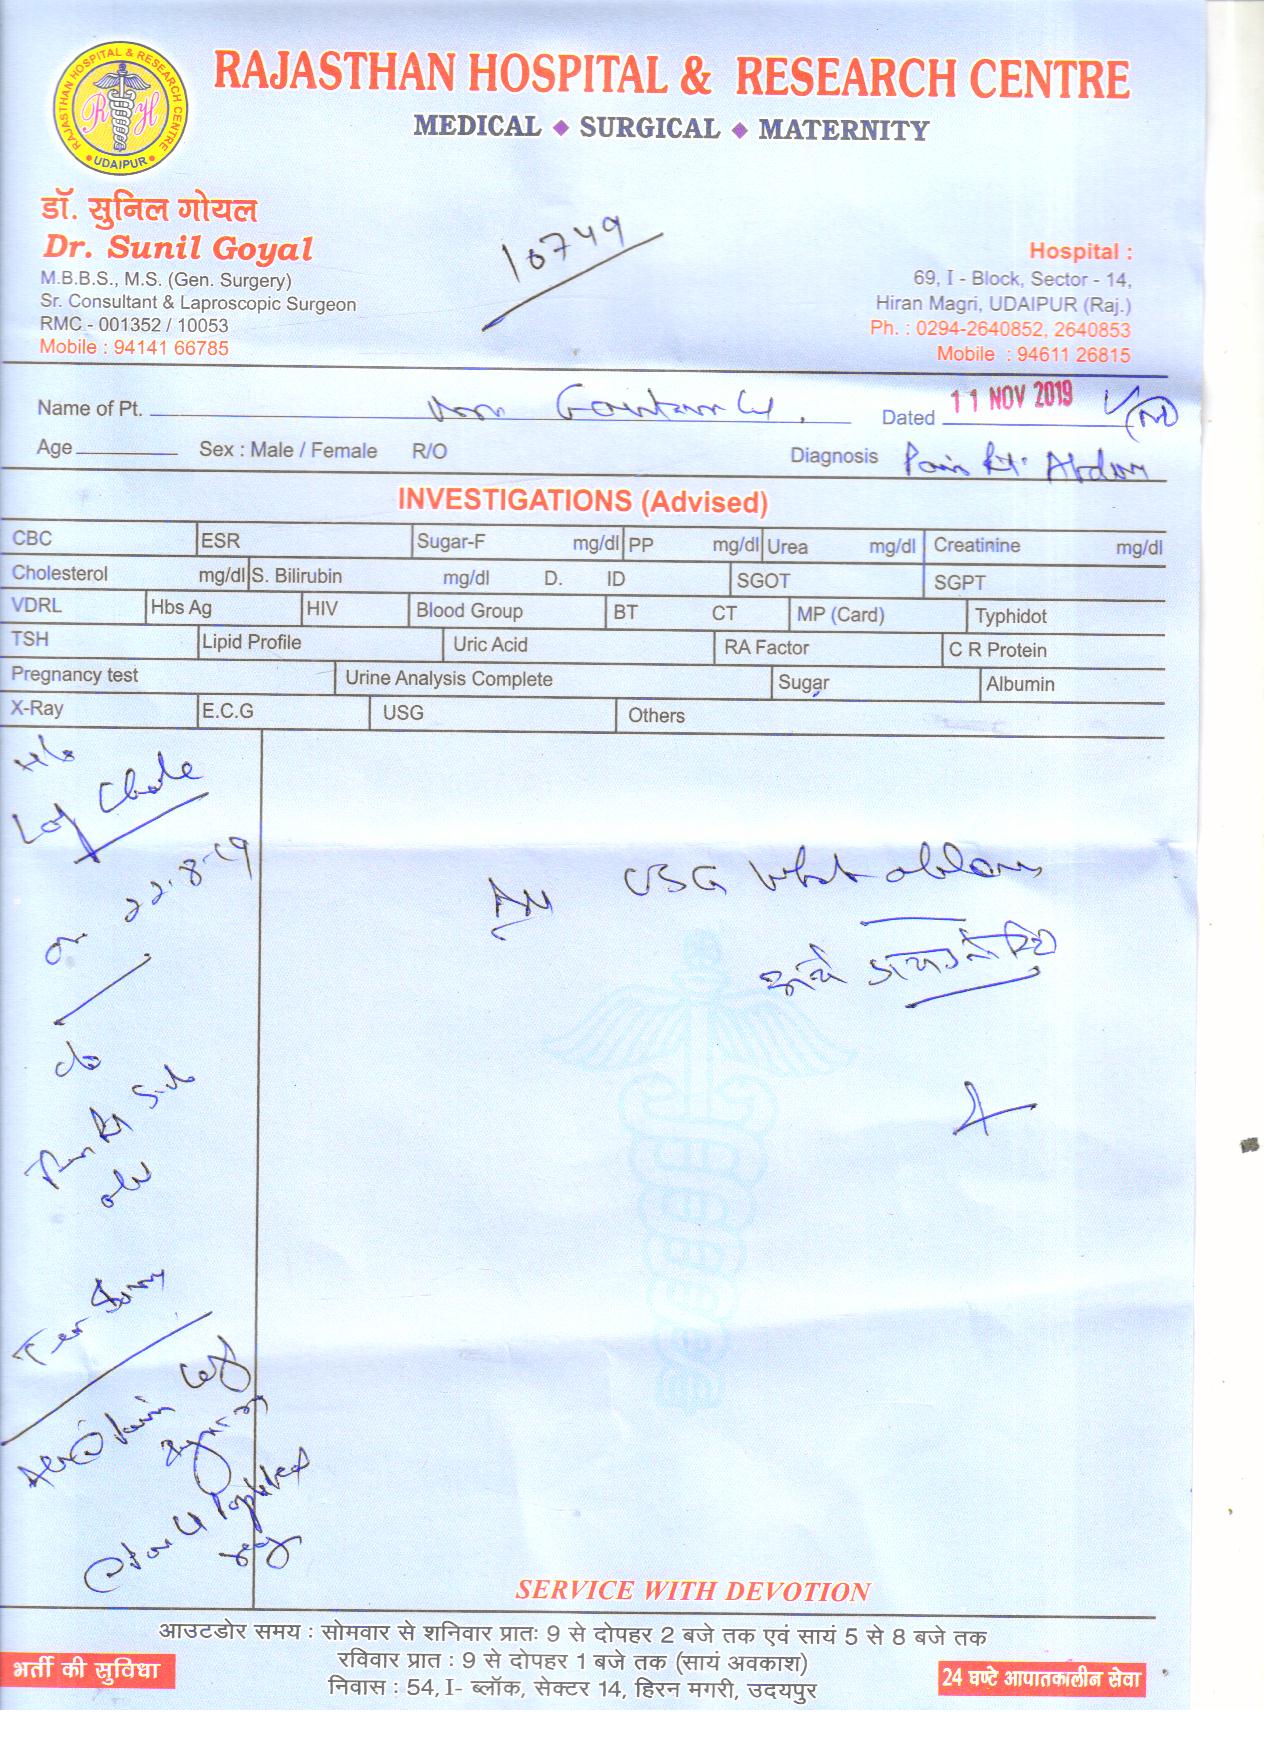 RAJASTHAN HOSPITAL & RESEARCH CENTRE
RAJASTHAN HOSPITAL & RESEARCH CENTRE
RH
UDAIPUR
MEDICAL ◆ SURGICAL ◆ MATERNITY
डॉ. सुनिल गोयल
Dr. Sunil Goyal
M.B.B.S., M.S. (Gen. Surgery)
Sr. Consultant & Laproscopic Surgeon
RMC - 001352 / 10053
Mobile : 94141 66785
10749
Hospital :
69, I - Block, Sector - 14,
Hiran Magri, UDAIPUR (Raj.)
Ph. : 0294-2640852, 2640853
Mobile : 94611 26815
Name of Pt. Dated 11 NOV 2019
Age Sex : Male / Female R/O Diagnosis Pain Rt.
INVESTIGATIONS (Advised)
CBC ESR Sugar-F mg/dl PP mg/dl Urea mg/dl Creatinine mg/dl
Cholesterol mg/dl S. Bilirubin mg/dl D. ID SGOT SGPT
VDRL Hbs Ag HIV Blood Group BT CT MP (Card) Typhidot
TSH Lipid Profile Uric Acid RA Factor C R Protein
Pregnancy test Urine Analysis Complete Sugar Albumin
X-Ray E.C.G USG Others
H/o
Lap Chole
on 22.8.19
c/o
USG
SERVICE WITH DEVOTION
आउटडोर समय : सोमवार से शनिवार प्रातः 9 से दोपहर 2 बजे तक एवं सायं 5 से 8 बजे तक
रविवार प्रात : 9 से दोपहर 1 बजे तक (सायं अवकाश)
भर्ती की सुविधा
24 घण्टे आपातकालीन सेवा
निवास : 54, I- ब्लॉक, सेक्टर 14, हिरन मगरी, उदयपुर